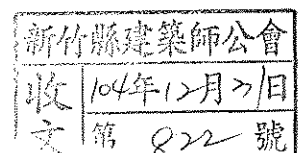 新竹縣建築師公會
收文
104年12月21日
第 822 號